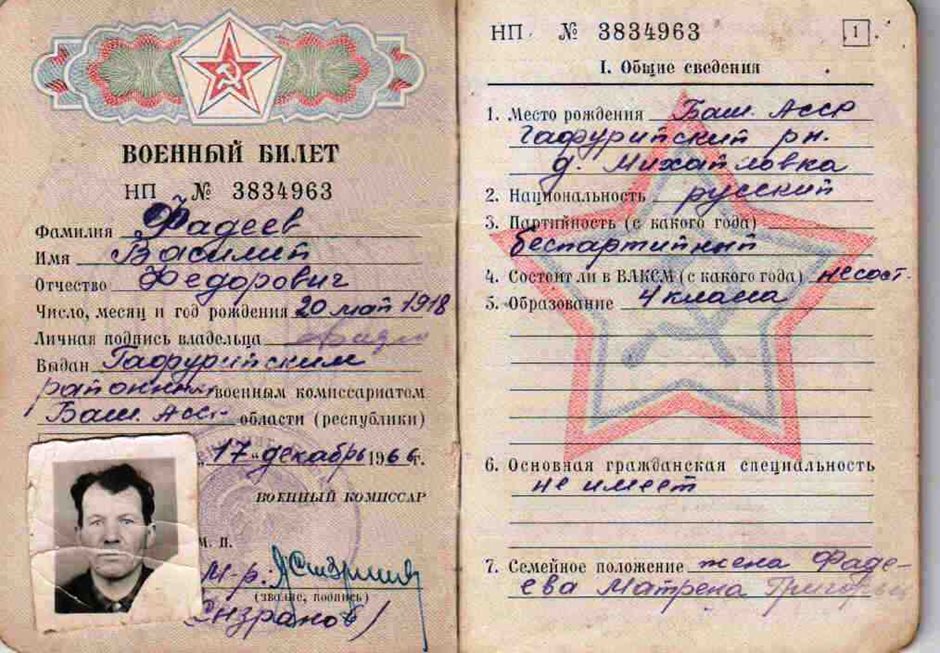 ВОЕННЫЙ БИЛЕТ
НП № 3834963
Фамилия Фадеев
Имя Василий
Отчество Федорович
Число, месяц и год рождения 20 май 1918
Личная подпись владельца
Выдан Гафурийским
районным военным комиссариатом
Баш. Асср области (республики)
„17“ декабрь 1966г.
ВОЕННЫЙ КОМИССАР
М. П.
М-р.
(звание, подпись)
НП № 3834963
1
I. Общие сведения
1. Место рождения Баш. Асср
Гафурийский рн.
д. Михайловка
2. Национальность русский
3. Партийность (с какого года)
беспартийный
4. Состоит ли в ВЛКСМ (с какого года) не сост.
5. Образование 4 класса
6. Основная гражданская специальность
не имеет
7. Семейное положение жена Фаде-
ева Матрена